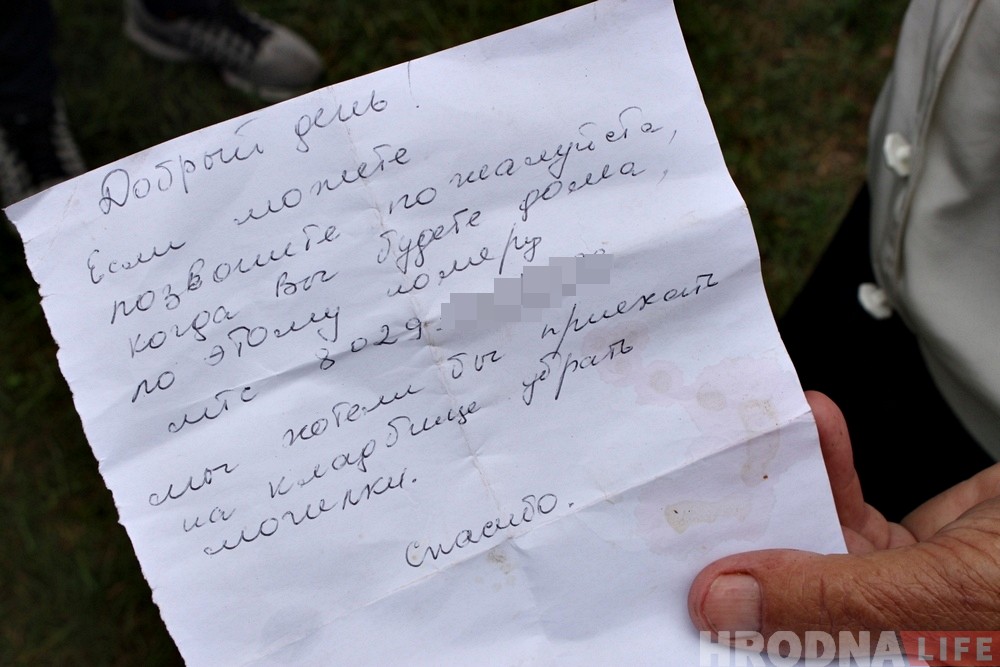 Добрый день!
Если можете
позвоните пожалуйста,
когда вы будете дома,
по этому номеру
мтс 8029-
мы хотели бы приехать
на кладбище убрать
могилки.
Спасибо.
HRODNA LIFE